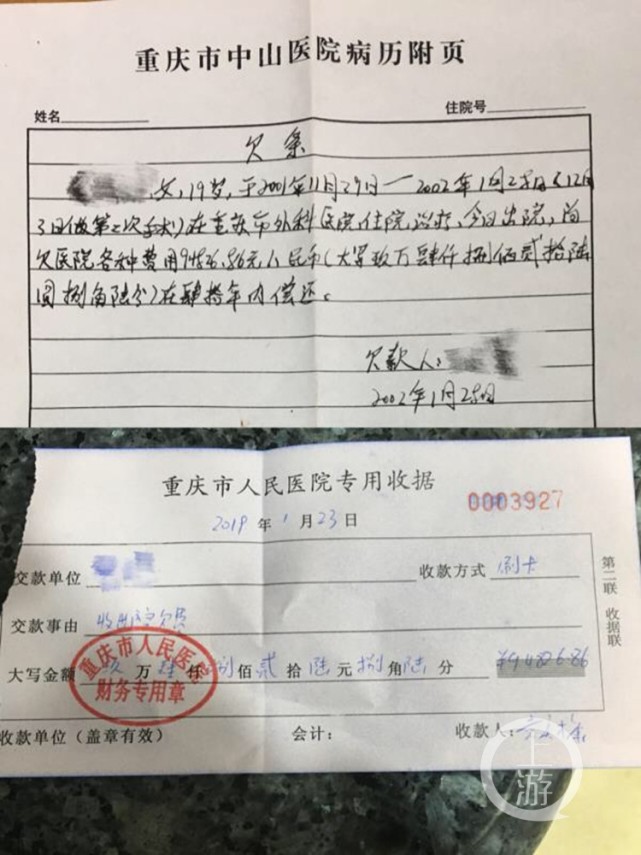 重庆市中山医院病历附页
姓名 住院号
欠条
女,19岁,于2001年11月29日—2002年1月25日(12月
3日做第二次手术)在重庆市外科医院住院治疗,今日出院,尚
欠医院各种费用94826.86元人民币(大写玖万肆仟捌佰贰拾陆
圆捌角陆分)在肆拾年内偿还。
欠款人:
2002年1月25日
重庆市人民医院专用收据
0003927
2019年1月23日
交款单位 收款方式 刷卡
交款事由 收出院欠费
大写金额 玖万肆仟捌佰贰拾陆元捌角陆分 ¥94826.86
收款单位(盖章有效) 会计: 收款人:
第二联 收据联
重庆市人民医院
财务专用章
上游